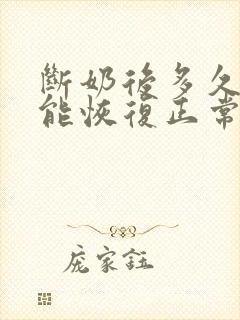 斷奶後多久
能恢復正常
庞家鈺